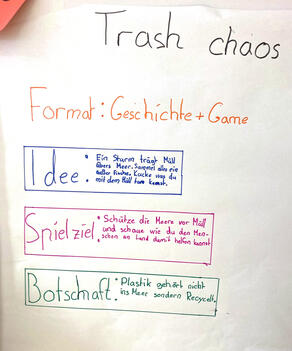 Trash chaos
Format: Geschichte + Game
Idee: Ein Sturm trägt Müll
übers Meer. Sammel alles ein
außer Fische. Gucke was du
mit dem Müll tun kannst.
Spielziel: Schütze die Meere vor Müll
und schaue wie du den Men-
schen an Land damit helfen kannst
Botschaft: Plastik gehört nicht
ins Meer sondern Recycelt.